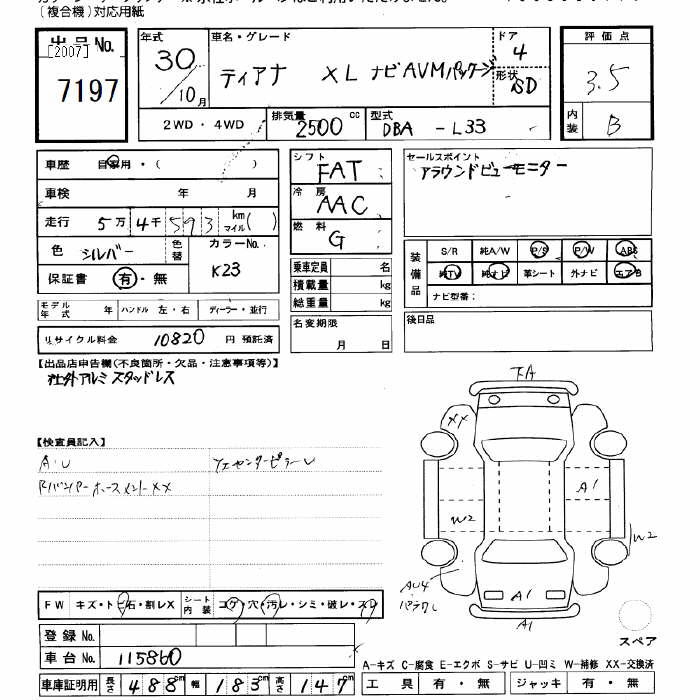 (複合機)対応用紙
出品No.
[2007]
7197
年式 30/10月
車名・グレード
ティアナ XL ナビAVMパッケージ
ドア 4
形状 SD
2WD・4WD
排気量 2500 cc
型式 DBA -L33
評価点 3.5
内装 B
車歴 自家用・( )
車検 年 月
走行 5万4千593 km マイル( )
色 シルバー 色替
カラーNo. K23
保証書 有・無
モデル年式 年 ハンドル 左・右 ディーラー・並行
リサイクル料金 10820 円 預託済
シフト FAT
冷房 AAC
燃料 G
乗車定員 名
積載量 kg
総重量 kg
名変期限 月 日
セールスポイント
アラウンドビューモニター
装備品
S/R 純A/W P/S P/W ABS
純TV 純ナビ 革シート 外ナビ エアB
ナビ型番:
後日品
【出品店申告欄(不良箇所・欠品・注意事項等)】
社外アルミスタッドレス
【検査員記入】
A・U
センターピラーU
Rバンパーホースメント XX
FA
XX
A1
W2
W2
AU4
A1
A1
スペア
FW キズ・トビ石・割レX シート内装 コゲ・穴・汚レ・シミ・破レ・スレ
登録No.
車台No. 115860
車庫証明用 長さ 488cm 幅 183cm 高さ 147cm
A-キズ C-腐食 E-エクボ S-サビ U-凹ミ W-補修 XX-交換済
工具 有・無 ジャッキ 有・無